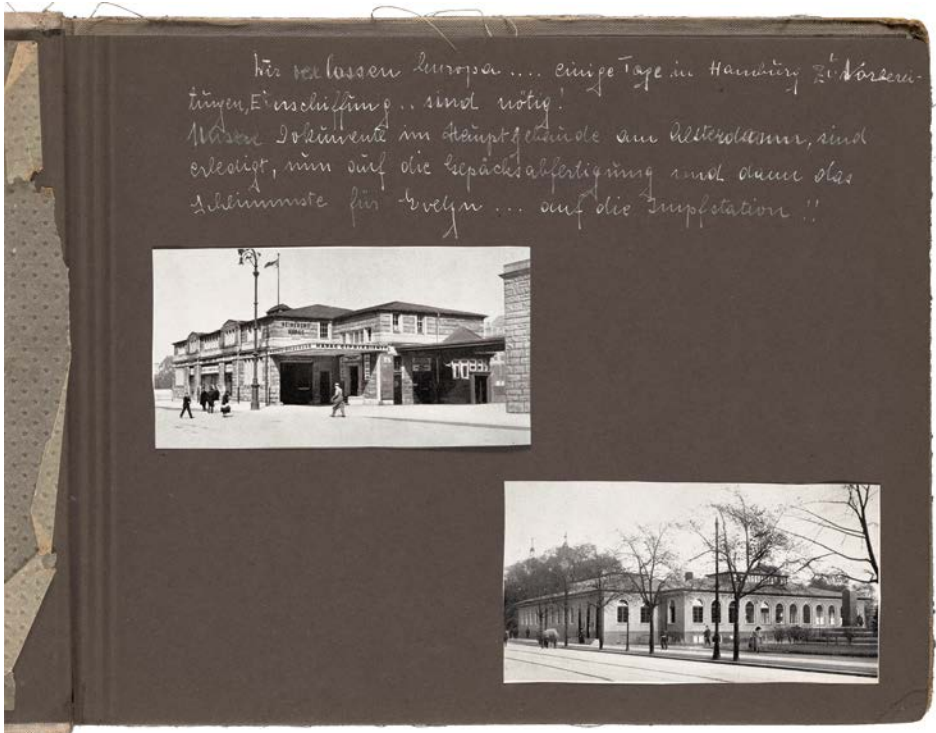 Wir verlassen Europa .... einige Tage in Hamburg zu Vorberei-
tungen, Einschiffung .. sind nötig!
Unsere Dokumente im Hauptgebäude am Alsterdamm, sind
erledigt, nun auf die Gepäcksabfertigung und dann das
Schlimmste für Evelyn ... auf die Impfstation !!